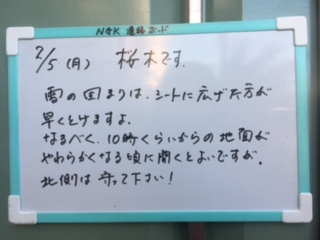 NGK 連絡ボード
2/5(月) 桜木です.
雪の固まりは、シートに広げた方が
早くとけますよ.
なるべく、10時くらいからの地面が
やわらかくなる頃に開くとよいですが、
北側は守って下さい!